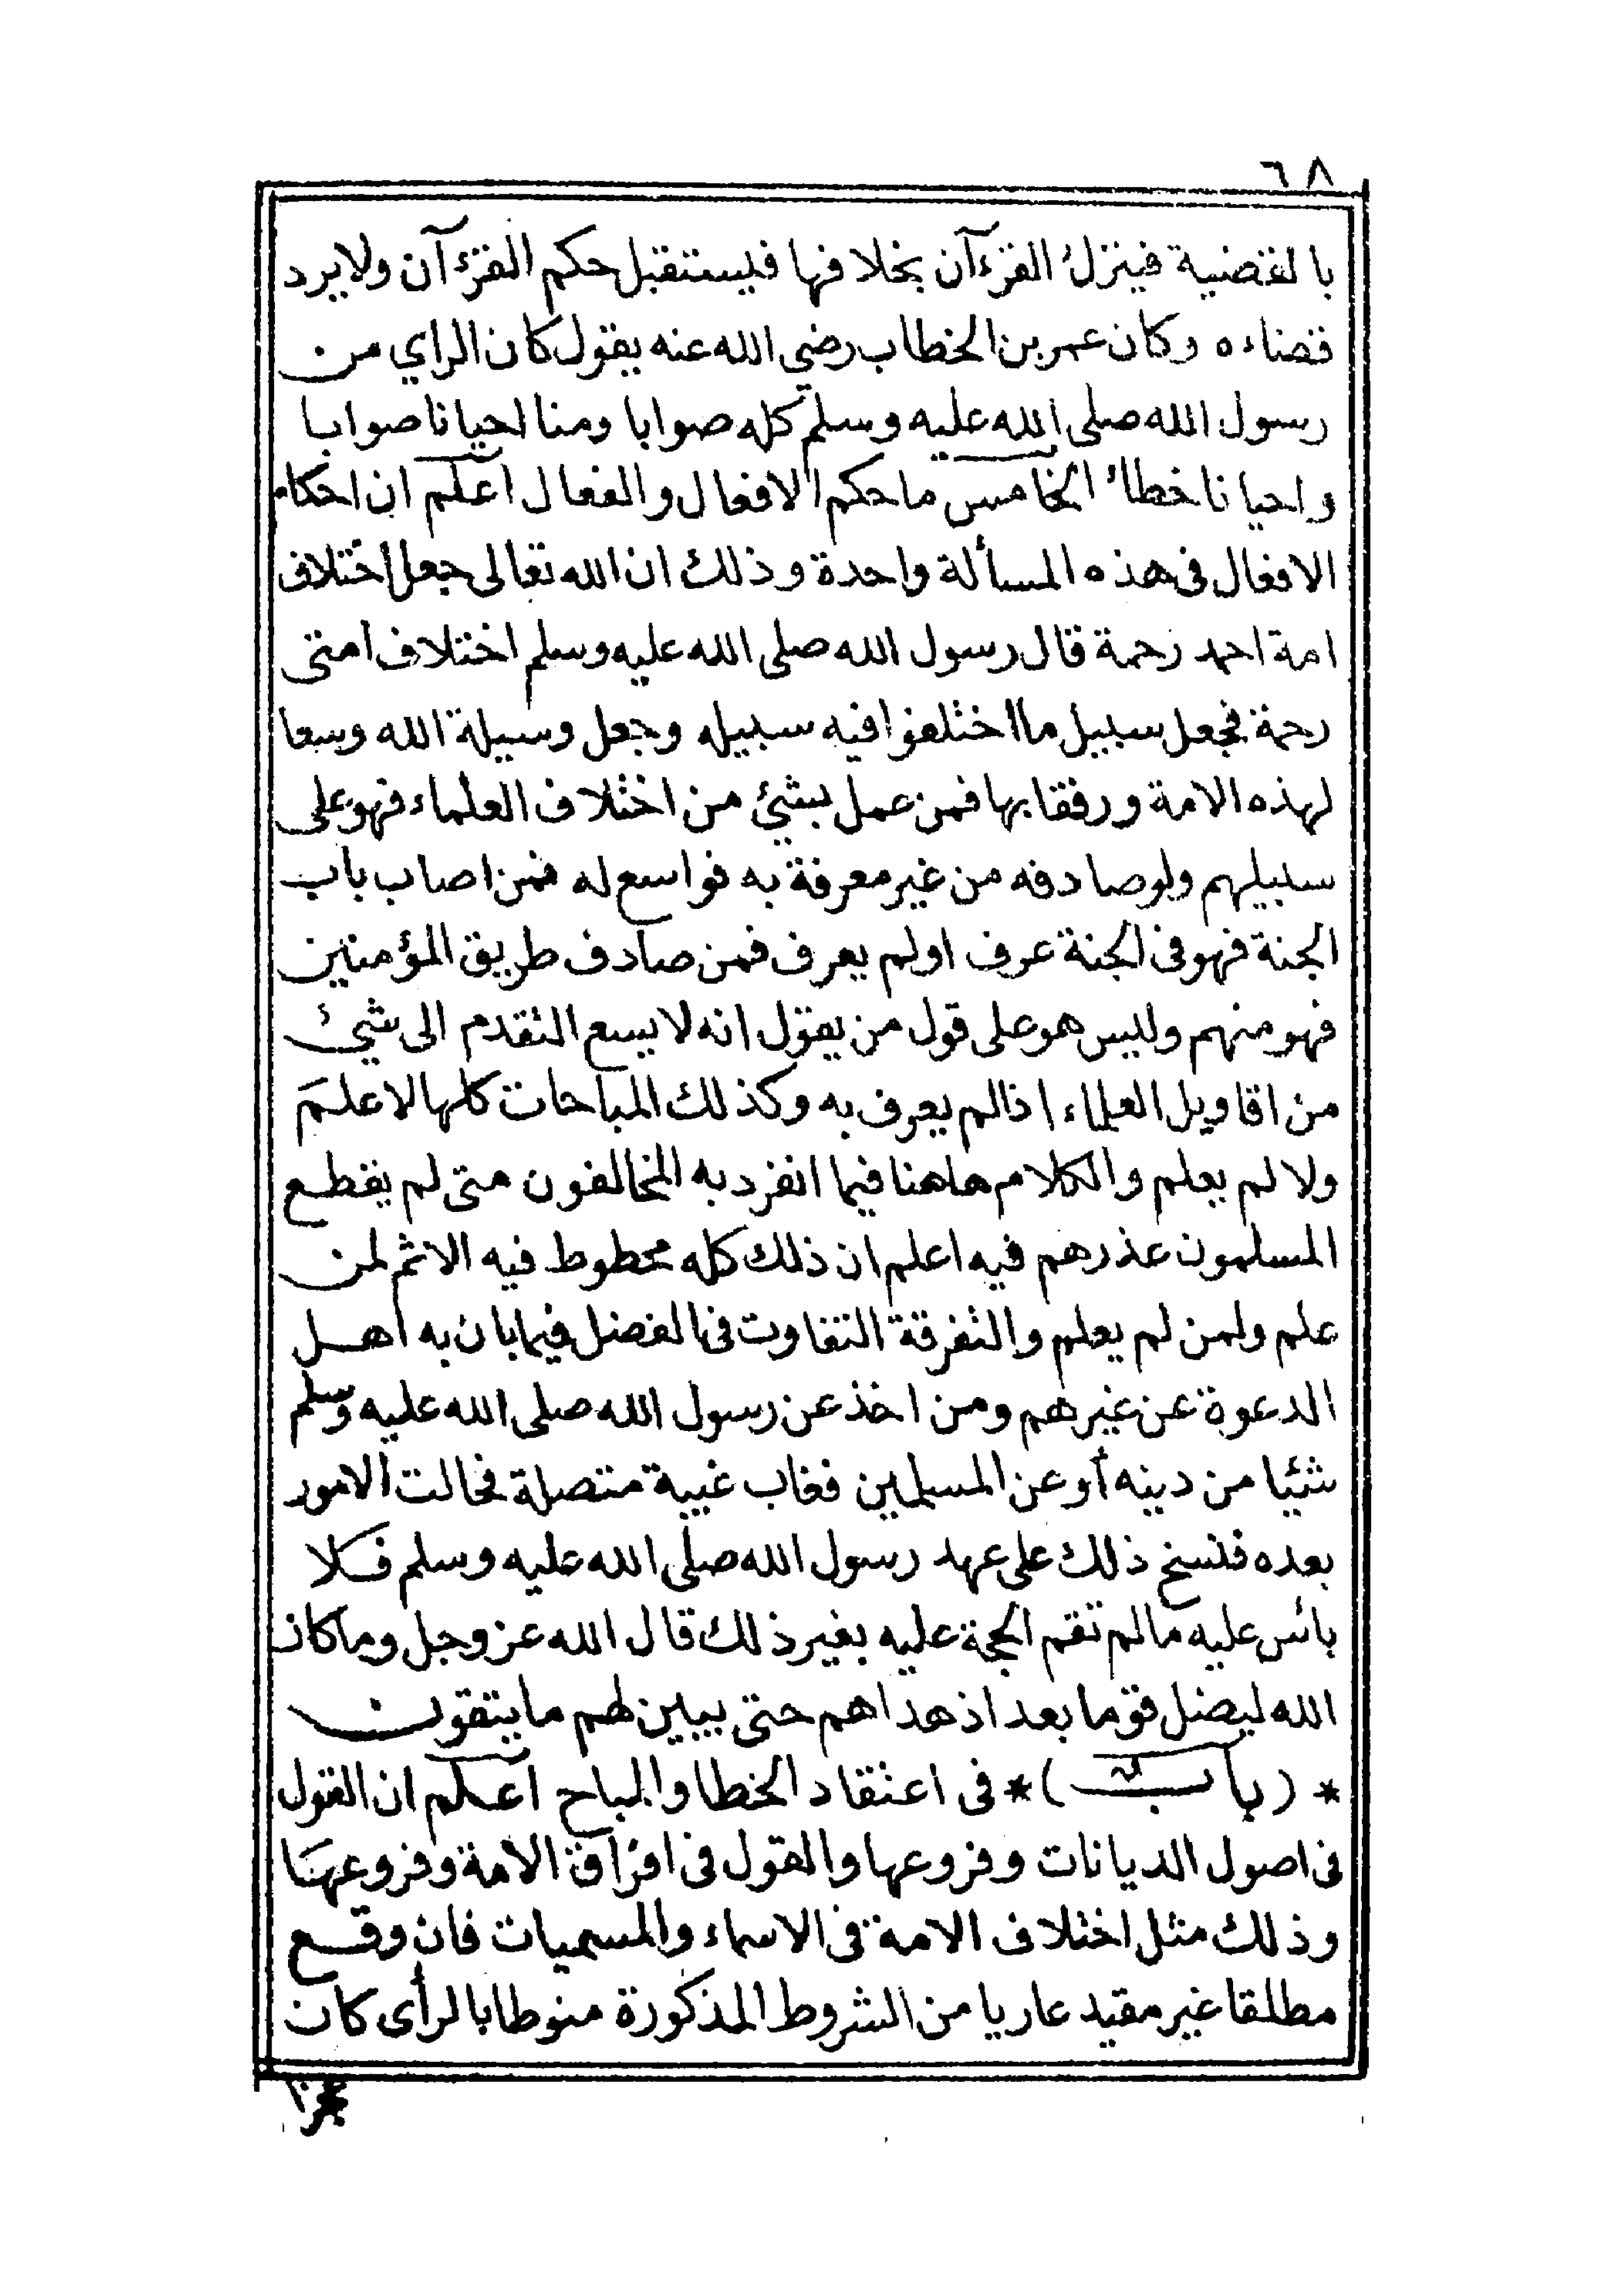 ٦٨
بالقضية فينزل القرءآن بخلافها فيستقبل حكم القرءآن ولايرد
قضاءه وكان عمر بن الخطاب رضي الله عنه يقول كان الراي من
رسول الله صلى الله عليه وسلم كله صوابا ومنا احيانا صوابا
واحيانا خطاء الخامس ما حكم الافعال والفعال اعلم ان احكام
الافعال فى هذه المسألة واحدة وذلك ان الله تعالى جعل اختلاف
امة احمد رحمة قال رسول الله صلى الله عليه وسلم اختلاف امتى
رحمة فجعل سبيل ما اختلفوا فيه سبيله وجعل وسيلة الله وسعا
لهذه الامة ورفقا بها فمن عمل بشئ من اختلاف العلماء فهو على
سبيلهم ولو صادفه من غير معرفة به فواسع له فمن اصاب باب
الجنة فهو فى الجنة عرف اولم يعرف فمن صادف طريق المؤمنين
فهو منهم وليس هو على قول من يقول انه لا يسع التقدم الى شيئ
من اقاويل العلماء اذا لم يعرف به وكذلك المباحات كلها لا علم
ولا لم يعلم والكلام هاهنا فيما انفرد به المخالفون متى لم يقطع
المسلمون عذرهم فيه اعلم ان ذلك كله محطوط فيه الاثم لمن
علم ولمن لم يعلم والتفرقة التفاوت فى الفضل فيما بان به اهل
الدعوة عن غيرهم ومن اخذ عن رسول الله صلى الله عليه وسلم
شئيا من دينه أو عن المسلمين فغاب غيبة متصلة فحالت الامور
بعده فنسخ ذلك على عهد رسول الله صلى الله عليه وسلم فلا
بائس عليه ما لم تقم الحجة عليه بغير ذلك قال الله عز وجل وما كان
الله ليضل قوما بعد اذ هداهم حتى يبين لهم ما يتقون
* (باب) * فى اعتقاد الخطا والمباح اعلم ان القول
فى اصول الديانات وفروعها والقول فى افتراق الامة وفروعها
وذلك مثل اختلاف الامة فى الاسماء والمسميات فان وقع
مطلقا غير مقيد عاريا من الشروط المذكورة منوطا بالرأى كان